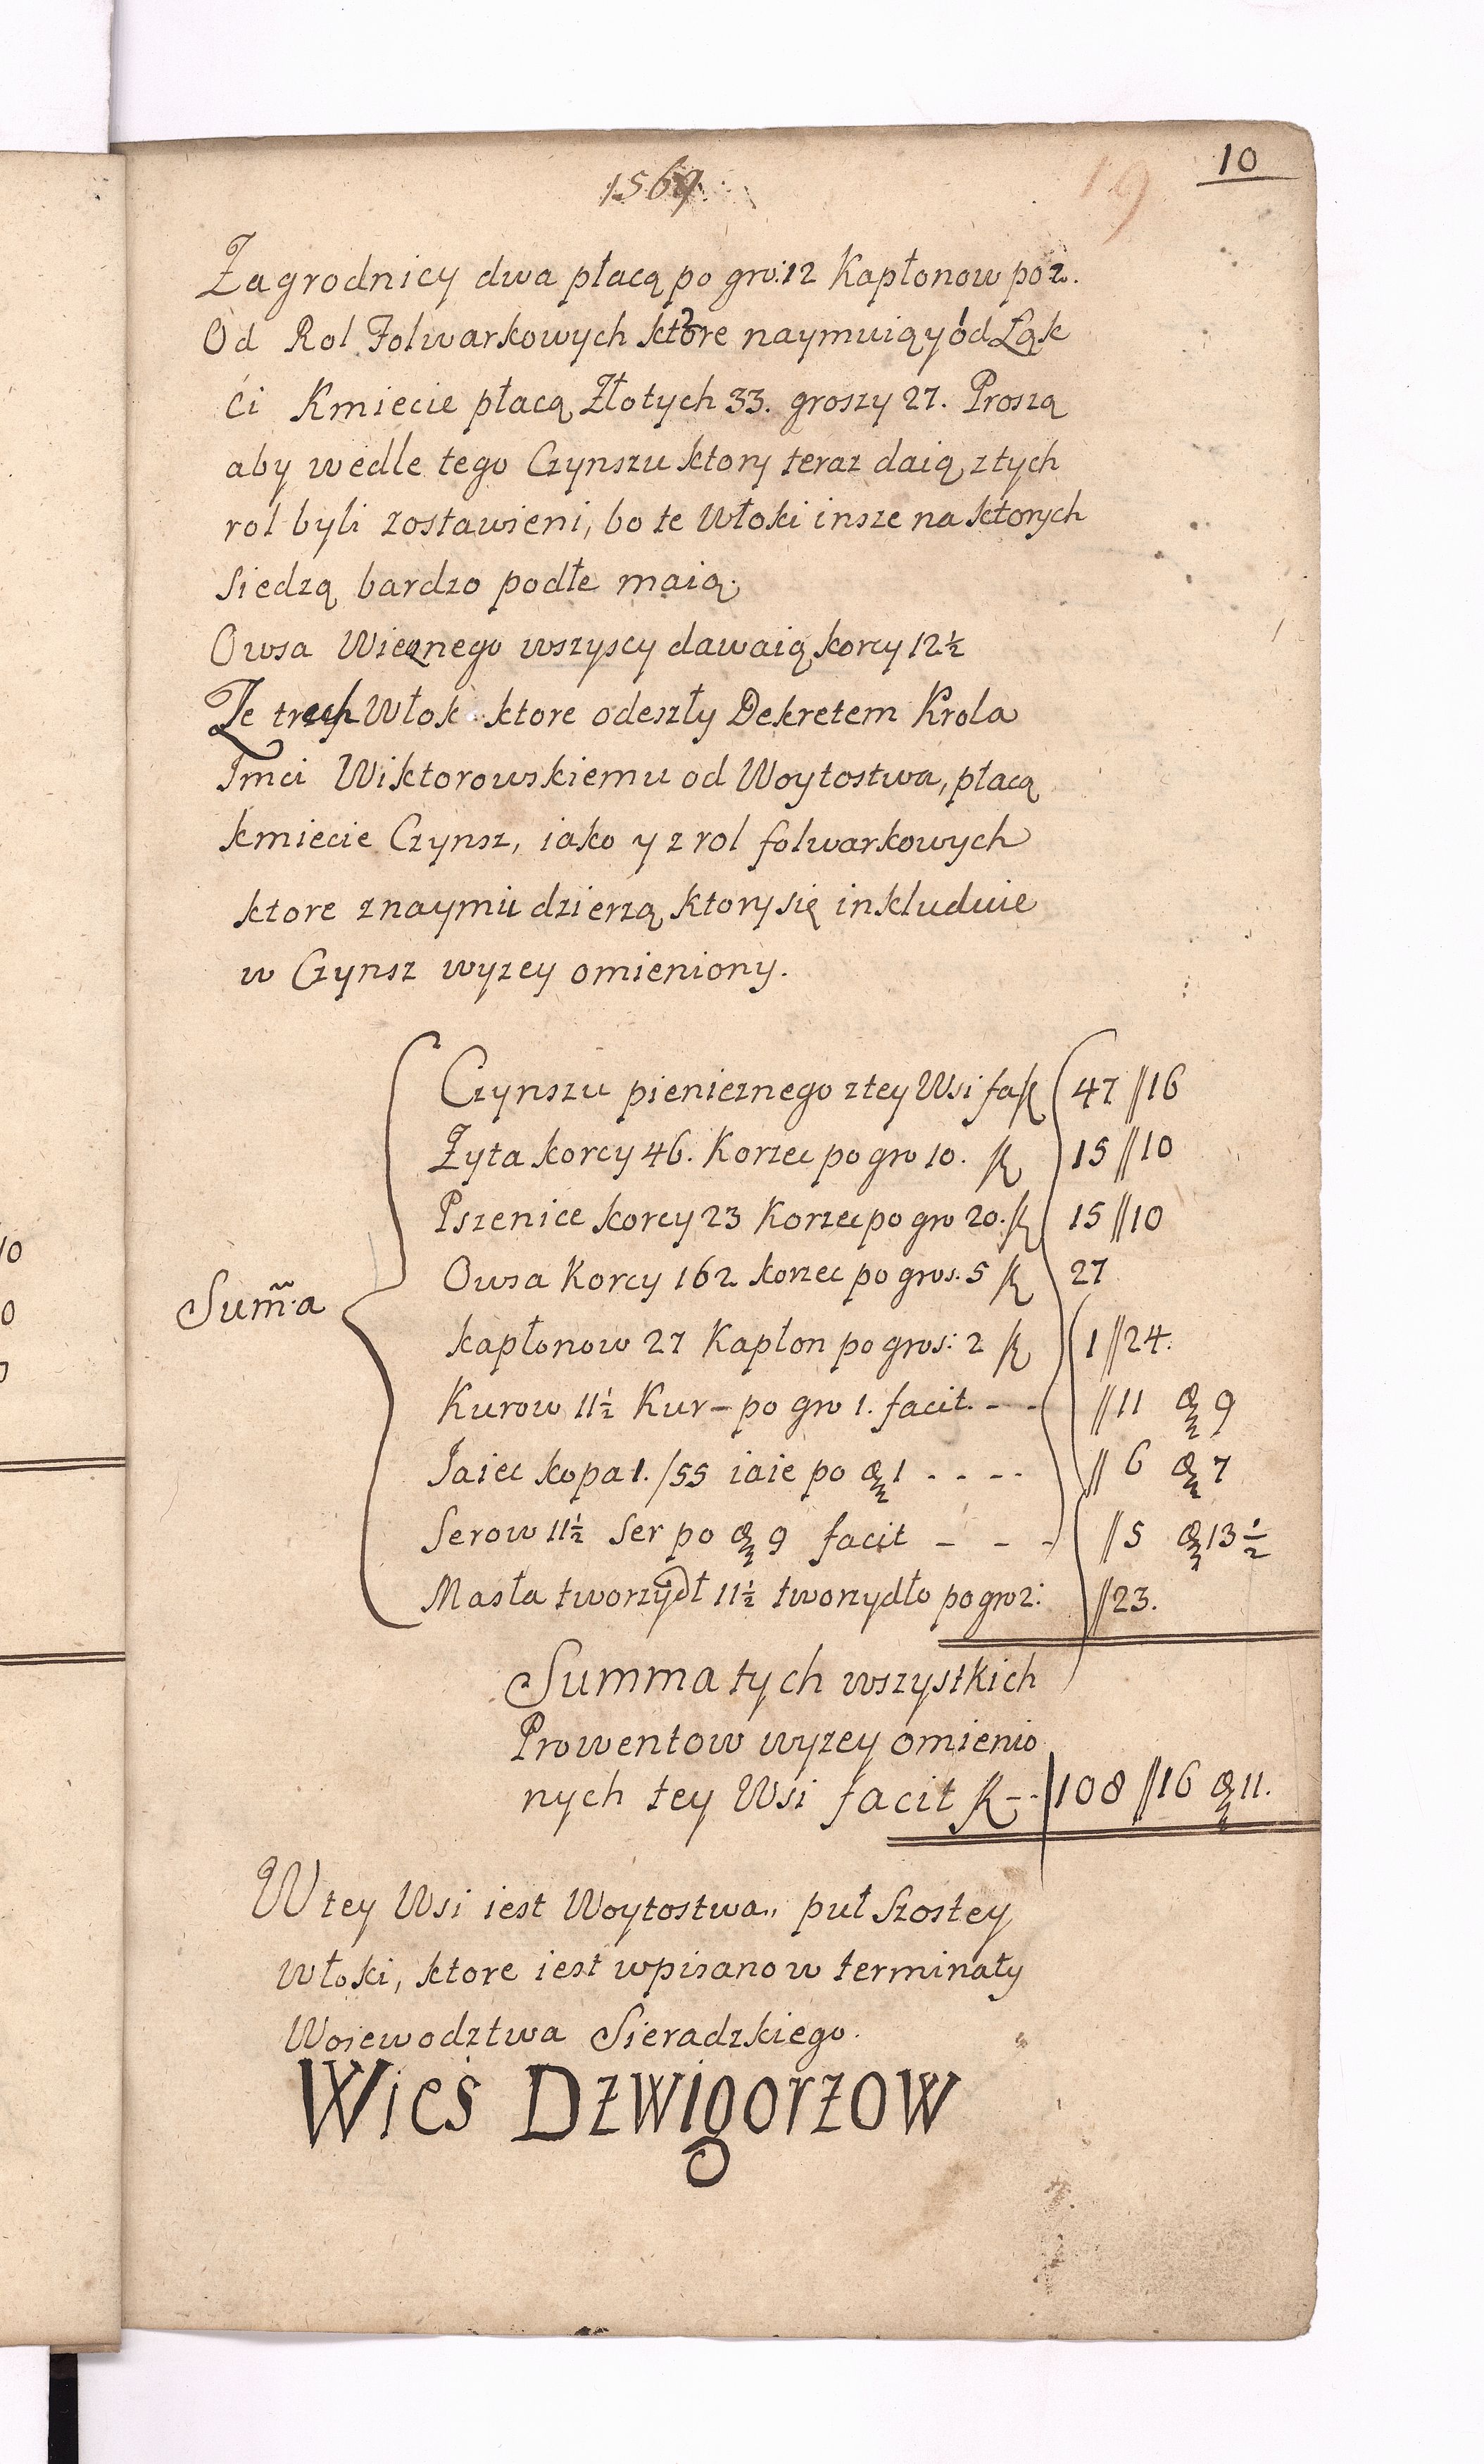 10
19
1569
Zagrodnicy dwa płacą po gro: 12 Kapłonow po 2.
Od Rol Folwarkowych ktore naymuią y od Ląk
ći Kmiecie płacą Złotych 33. groszy 27. Proszą
aby wedle tego Czynszu ktory teraz daią z tych
rol byli zostawieni, bo te Włoki insze na ktorych
siedzą bardzo podłe maią.
Owsa Wiecznego wszyscy dawaią korcy 12½
Ze trzech Włok ktore odeszły Dekretem Krola
Jmci Wiktorowskiemu od Woytostwa, płacą
kmiecie Czynsz, iako y z rol folwarkowych
ktore znaymu dzierzą ktory się inkluduie
w Czynsz wyzey omieniony.
Czynszu pienieznego z tey Wsi fa 47 // 16
Zyta korcy 46. Korzec po gro 10. 15 // 10
Pszenice korcy 23 Korzec po gro 20. 15 // 10
Owsa Korcy 162 korzec po gros. 5 27
Sum̃a
kapłonow 27 Kapłon po gros: 2 1 // 24.
Kurow 11½ Kur - po gro 1. facit. - - // 11 9
Jaiec kopa 1. /55 iaie po 1 - - - - // 6 7
Serow 11½ Ser po 9 facit - - - // 5 13½
Masła tworzydł 11½ tworzydło po gro 2: // 23.
Summa tych wszystkich
Prowentow wyzey omienio
nych tey Wsi facit - - 108 // 16 11.
W tey Wsi iest Woytostwa,, puł Szostey
włoki, ktore iest wpisano w terminaty
Woiewodztwa Sieradzkiego.
Wieś Dzwigorzow